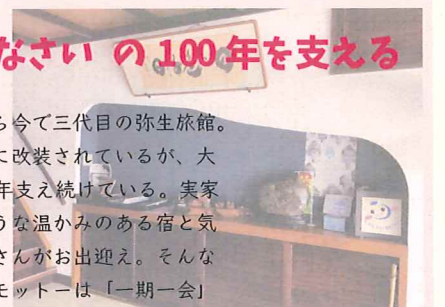 なさい の100年を支える
ら今で三代目の弥生旅館。
に改装されているが、大
年支え続けている。実家
うな温かみのある宿と気
さんがお出迎え。そんな
モットーは「一期一会」